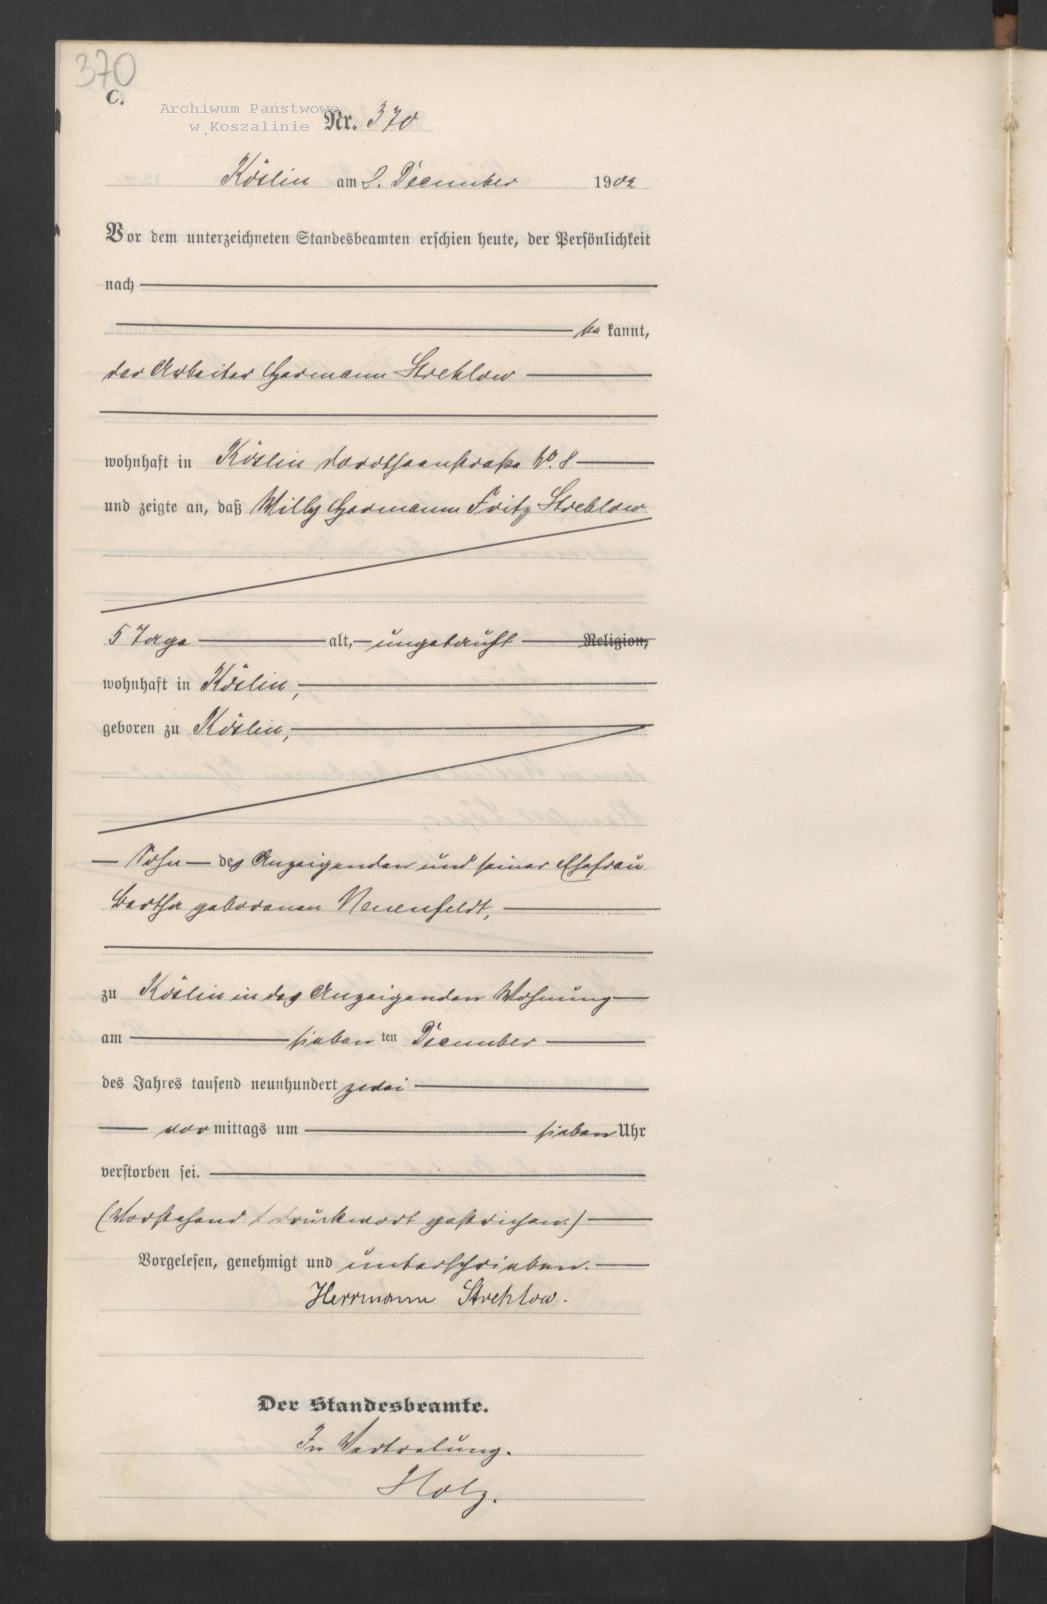 370
C.
Archiwum Państwowe
w Koszalinie
Nr. 370
Köslin am 9. December 1902
Vor dem unterzeichneten Standesbeamten erschien heute, der Persönlichkeit
nach
be kannt,
der Arbeiter Hermann Strehlow
wohnhaft in Köslin Dorotheenstraße No. 8
und zeigte an, daß Willy Hermann Fritz Strehlow
5 Tage alt, ungetauft Religion,
wohnhaft in Köslin,
geboren zu Köslin,
Sohn des Anzeigenden und seiner Ehefrau
Bertha geborenen Neuenfeldt,
zu Köslin in des Anzeigenden Wohnung
am sieben ten December
des Jahres tausend neunhundert zwei
vor mittags um sieben Uhr
verstorben sei.
(Vorstehend 1 Druckwort gestrichen.)
Vorgelesen, genehmigt und unterschrieben.
Herrmann Strehlow.
Der Standesbeamte.
In Vertretung.
Holz.